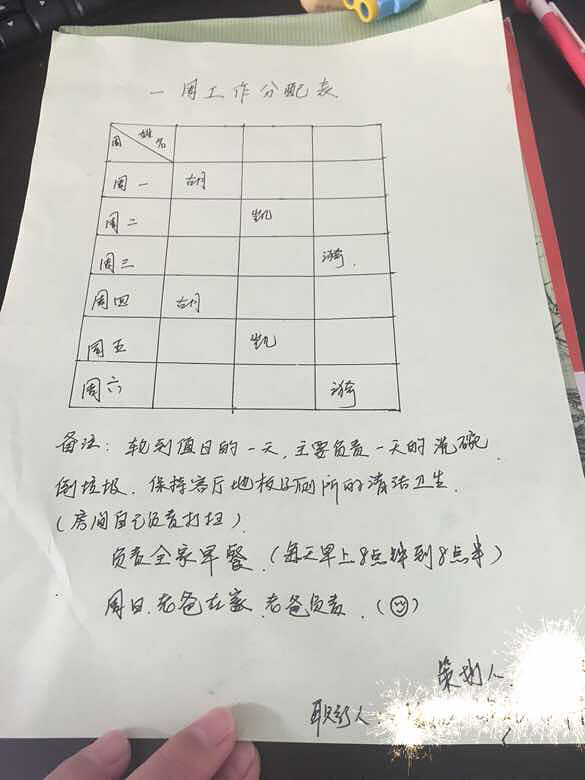 一周工作分配表
姓名
周
周一 胡
周二 凯
周三 漪
周四 胡
周五 凯
周六 漪
备注: 轮到值日的一天,主要负责一天的洗碗
倒垃圾、保持客厅地板及厕所的清洁卫生.
(房间自己负责打扫)
负责全家早餐.(每天早上8点钟到8点半)
周日.老爸在家.老爸负责.(☺)
策划人
人